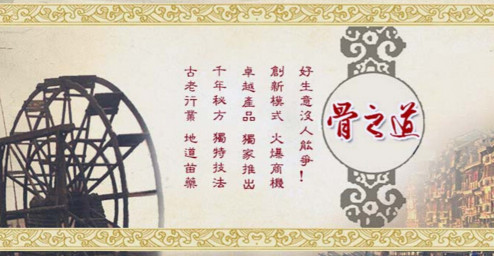 古老行業 地道苗藥
千年秘方 獨特技法
卓越產品 獨家推出
創新模式 火爆商機
好生意沒人能爭!
骨之道